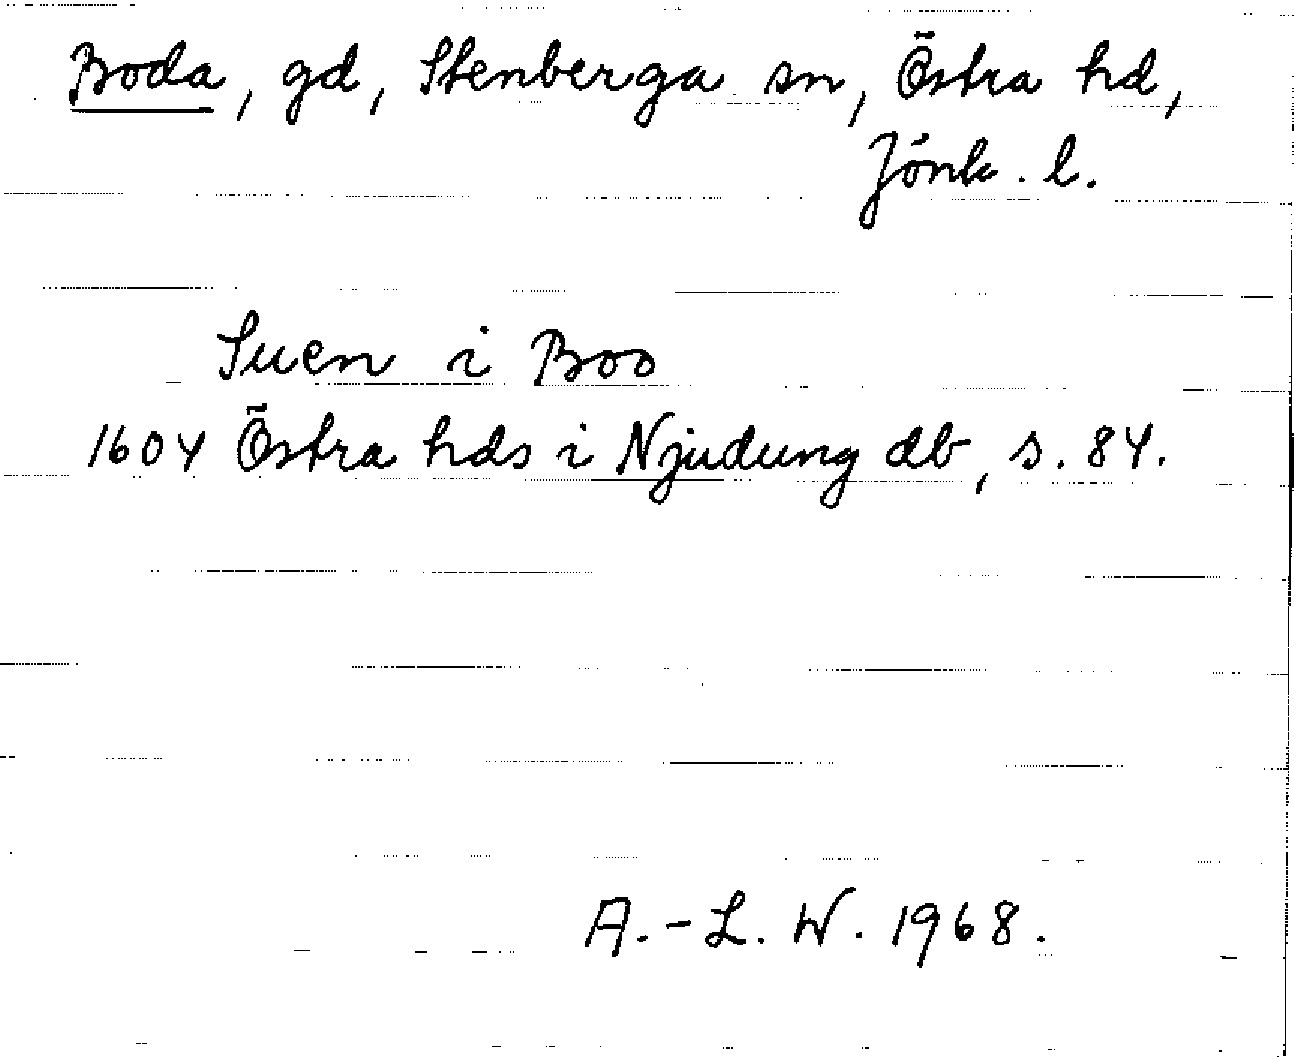 Boda, gd, Stenberga sn, Östra hd,
Jönk. l.
Suen i Boo
1604 Östra hds i Njudung db, s. 84.
A.-L. W. 1968.